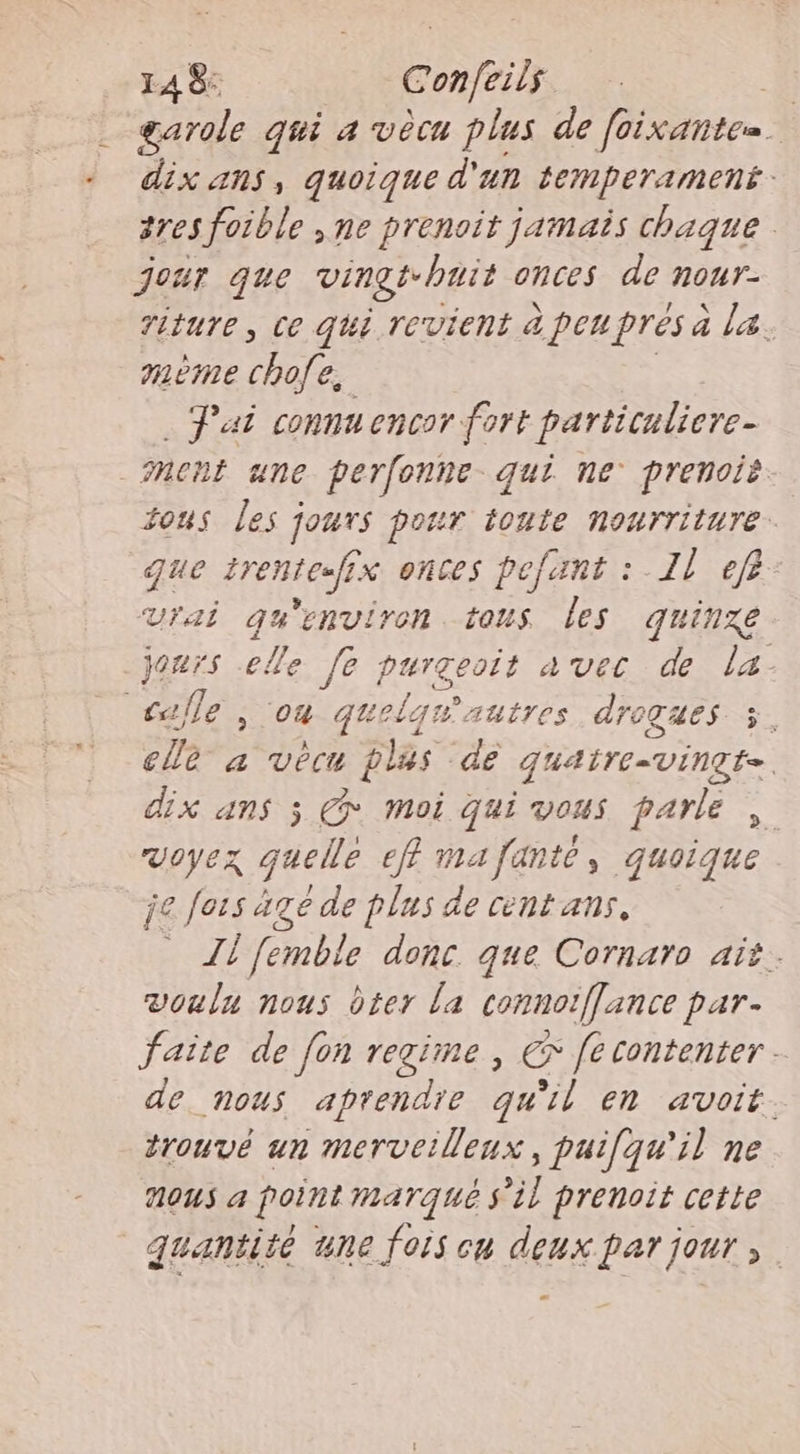 148 Conſeils
garole qui a vècu plus de ſoixante-
dix ans, quoique d'un temperament
tres foible, ne prenoit jamais chaque
jour que vingt-huit onces de nour-
riture, ce qui revient à peu prés à la
mème choſe.
J'ai connu encor fort particuliere-
ment une perſonne qui ne prenoit
tous les jours pour toute nourriture
que trente-ſix onces peſant : Il eſt
vrai qu'environ tous les quinze
jours elle ſe purgeoit avec de la
caſſe, ou quelqu'autres drogues ;
elle a vècu plus de quatre-vingt-
dix ans ; & moi qui vous parle,
voyez quelle eſt ma ſanté, quoique
je ſois àgé de plus de cent ans.
Il ſemble donc que Cornaro ait
voulu nous òter la connoiſſance par-
faite de ſon regime, & ſe contenter
de nous aprendre qu'il en avoit
trouvé un merveilleux, puiſqu'il ne
nous a point marqué s'il prenoit cette
quantité une fois ou deux par jour,